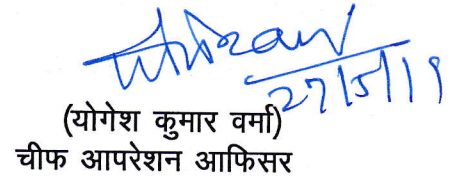 27/5/19
(योगेश कुमार वर्मा)
चीफ आपरेशन आफिसर